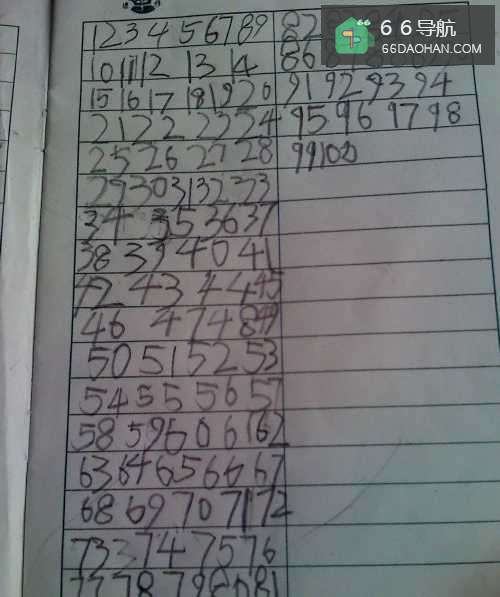 1 2 3 4 5 6 7 8 9
10 11 12 13 14
15 16 17 18 19 20
21 22 23 24
25 26 27 28
29 30 31 32 33
34 35 36 37
38 39 40 41
42 43 44 45
46 47 48 49
50 51 52 53
54 55 56 57
58 59 60 61 62
63 64 65 66 67
68 69 70 71 72
73 74 75 76
77 78 79 80 81
82
86
91 92 93 94
95 96 97 98
99 100
66导航
66DAOHAN.COM